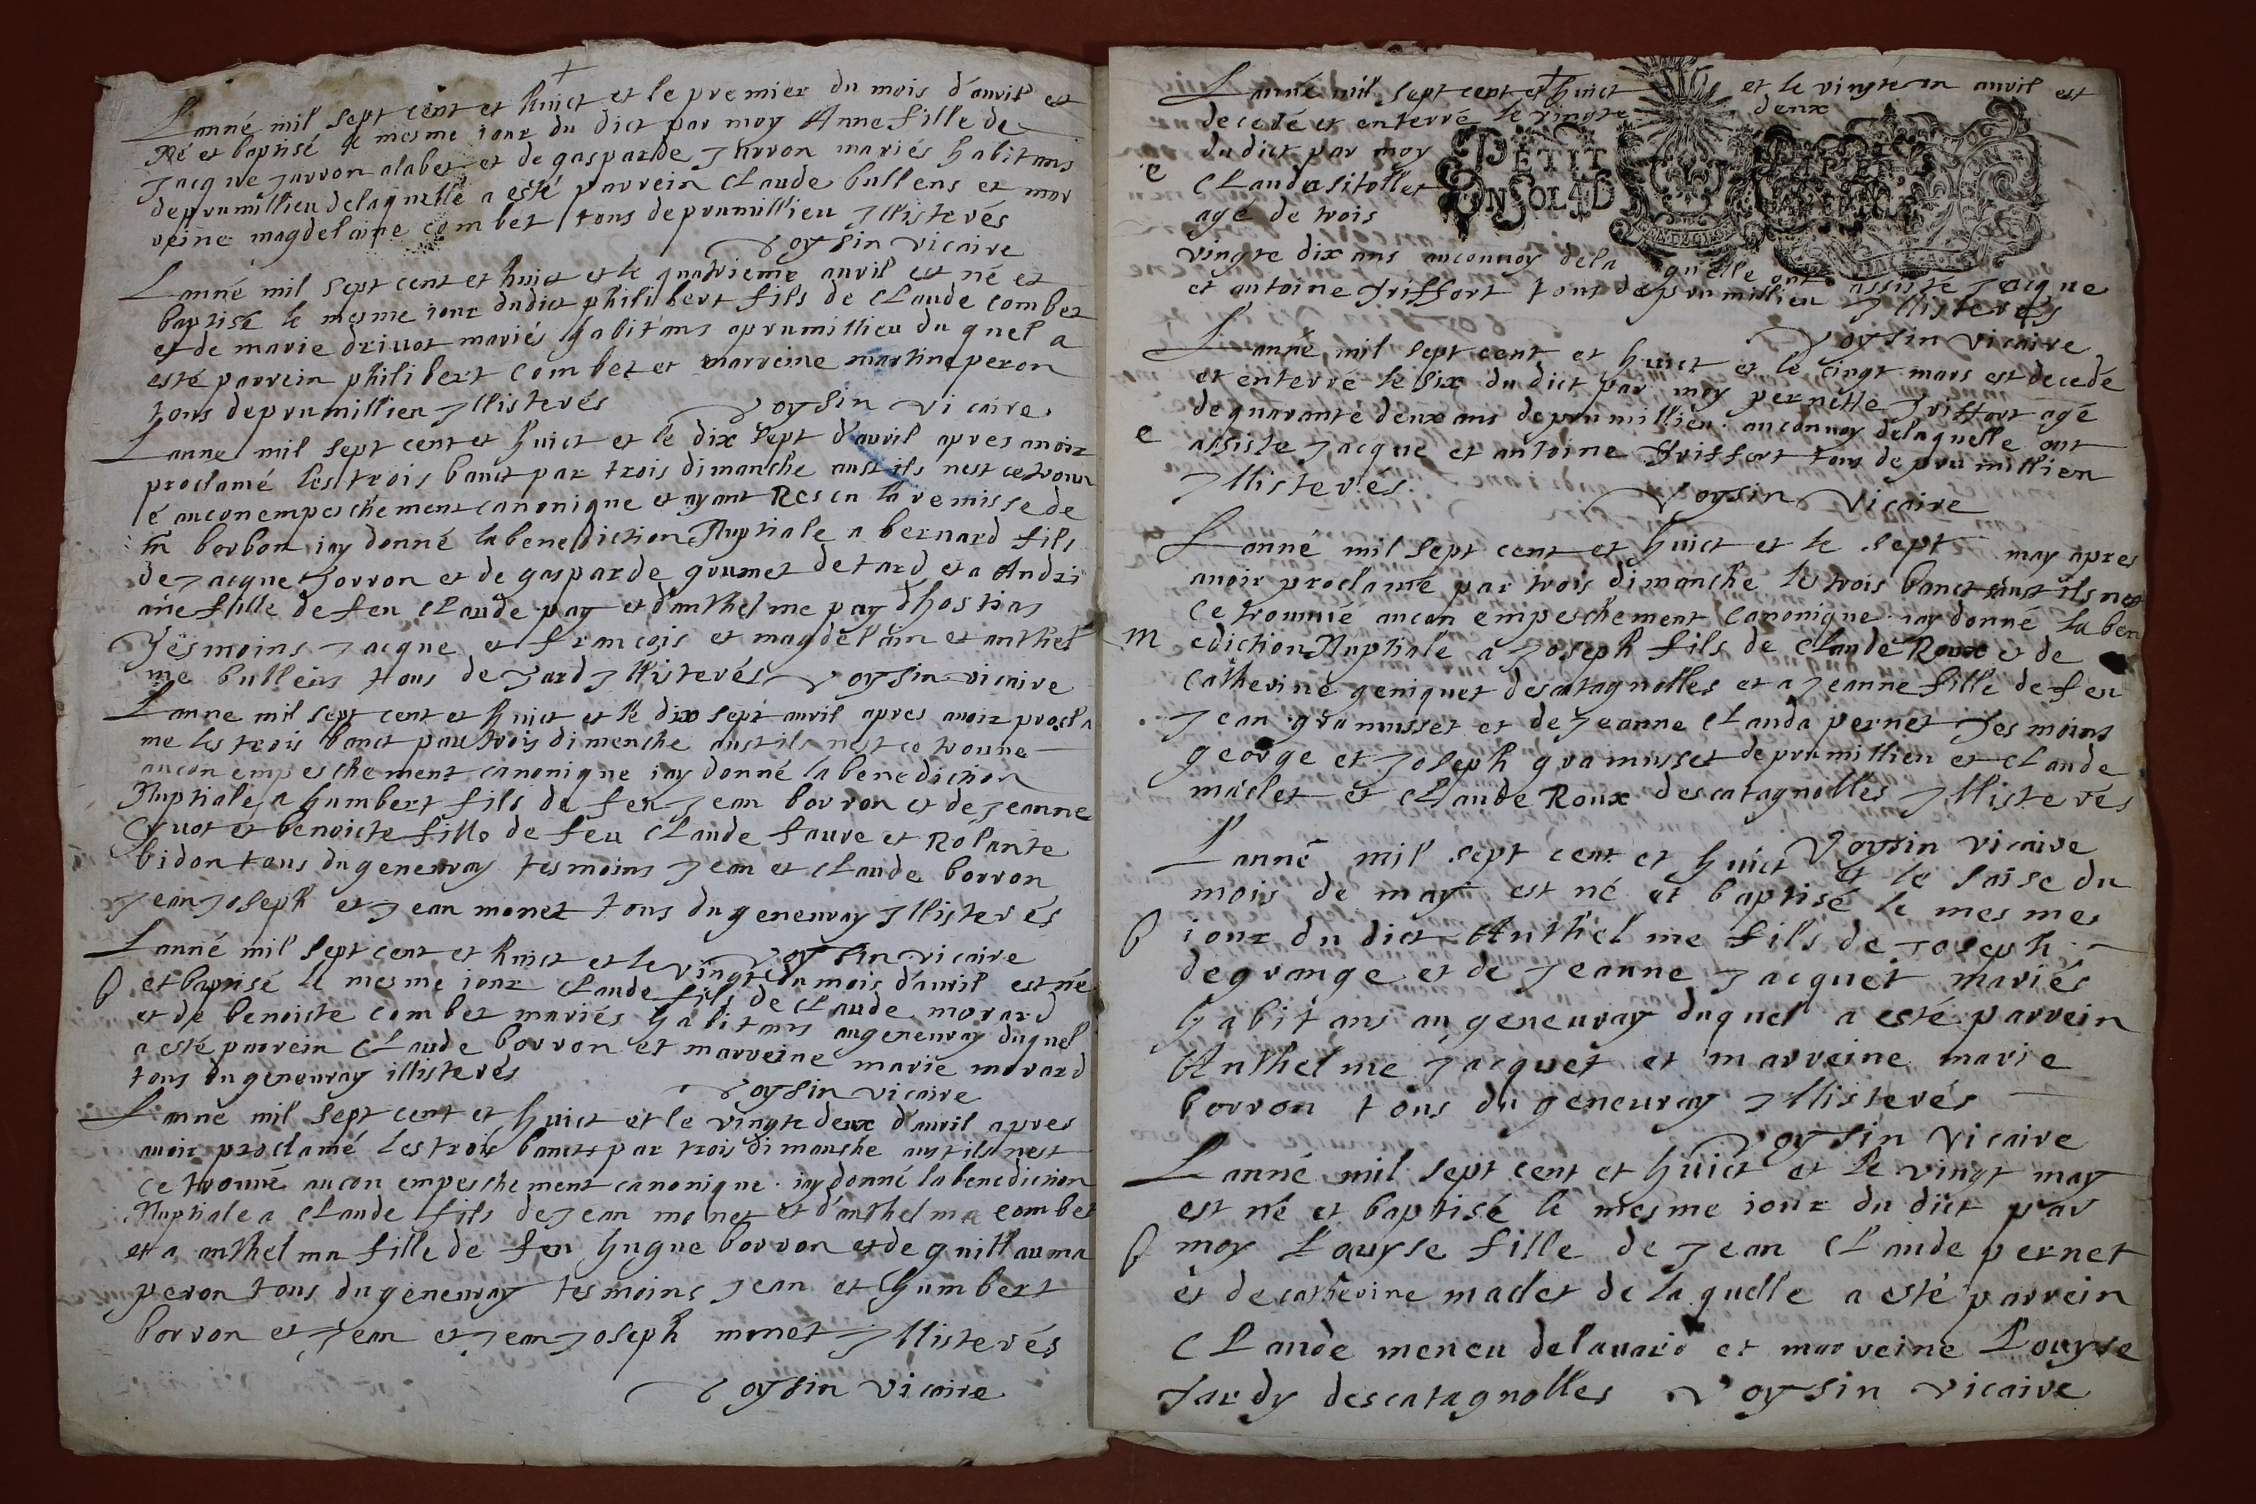 Lanné mil sept cent et huict et le premier du mois d'auril est
Né et baptisé le mesme iour du dict par moy Anne fille de
Jacque Jarron alabet et de gasparde Jarron mariés habitans
deprumillieu delaquelle a esté parrein CLaude bullens et mar
reine magdelaine combet tous deprumillieu Jllisterés
Voysin vicaire
Lanné mil sept cent et huict et le quatrieme auril est né et
baptisé le mesme iour dudict philibert fils de CLaude Combet
et de marie driuot mariés habitans aprumillieu du quel a
esté parrein philibert Combet et marreine martine peron
tous deprumillieu Jllisterés Voysin vicaire
Lanne mil sept cent et huict et le dix sept d'auril apres auoir
proclamé les trois banct par trois dimanche aust ils nest ce trouu
é aucon empeschement canonique et ayant Rescu la remisse de
borbon iay donné la benediction Nuptiale a bernard fils
de Jacque Jorron et de gasparde grumet de tard et a Andri
aine fille de feu CLaude pay et d'anthelme pay d'hostias
Tesmoins Jacque et francois et magdelain et anthel
me bulleins tous de Jard Jllisterés Voysin vicaire
Lanne mil sept cent et huict et le dix sept auril apres auoir procla
me les trois banct par trois dimenche aust ils nest ce trouue
aucon empeschement canonique iay donné la benediction
Nuptiale a humbert fils de feu Jean borron et de Jeanne
Cyuot et benoicte fille de feu CLaude faure et Rolante
bidon tous du geneuray tesmoins Jean et CLaude borron
Jean Joseph et Jean monet tous du geneuray Jllisterés
Voysin vicaire
Lanné mil sept cent et huict et le vingt du mois d'auril est né
b et baptisé le mesme iour CLaude fils de CLaude morard
et de benoiste combet mariés habitans au geneuray duquel
a esté parrein CLaude borron et marreine marie morard
tous du geneuray illisterés
Voysin vicaire
Lanné mil sept cent et huict et le vingte deux d'auril apres
auoir proclamé les trois banct par trois dimanshe aust ils nest
ce trouué aucon empeschement canonique iay donné la benediction
Nuptiale a CLaude fils de Jean monet et d'anthelma combet
et a anthelma fille de feu hugue borron et de guillauma
peron tous du geneuray tesmoins Jean et humbert
borron et Jean et Jean Joseph monet Jllisterés
Voysin vicaire
Lanné mil sept cent et huict et le vingte un auril est
decedé et enterré le vingte deux
du dict par moy
e CLauda sitollet
agé de trois
PETIT PAPIER
EN SOL 4 D
vingte dix ans auconuoy dela quelle ont assisté Jacque
et antoine Triffort tout deprumillieu Jllisterés
Voysin vicaire
Lanné mil sept cent et huict et le cingt mars est decedé
et enterré le six du dict par moy pernette Triffort agé
de quarante deux ans de prumillieu auconuoy delaquelle ont
e assiste Jacque et antoine Triffort tous de prumillieu
Jllisterés
Voysin Vicaire
Lanné mil sept cent et huict et le sept may apres
auoir proclamé par trois dimanche les trois banct aust ils nest
ce trouuué aucon empeschement Canonique iay donné la ben
m ediction Nuptiale a Joseph fils de CLaude Roux et de
Catherine geniquet descatagnolles et a Jeanne fille de feu
Jean gramusset et de Jeanne CLauda pernet Tesmoins
george et Joseph gramusset de prumillieu et CLaude
maclet et CLaude Roux descatagnolles Jllisterés
Voysin vicaire
L'anné mil sept cent et huict et le saise du
mois de may est né et baptisé le mesmes
b iour du dict Anthelme fils de Joseph
degrange et de Jeanne Jacquet mariés
habitans au geneuray duquel a esté parrein
Anthelme Jacquet et marreine marie
borron tous du geneuray Jllisterés
Voysin Vicaire
Lanné mil sept cent et huict et le vingt may
est né et baptisé le mesme iour du dict par
b moy Louyse fille de Jean CLaude pernet
et de catherine maclet de la quelle a esté parrein
CLaude meneu delauard et marreine Louyse
Tardy descatagnolles Voysin vicaire